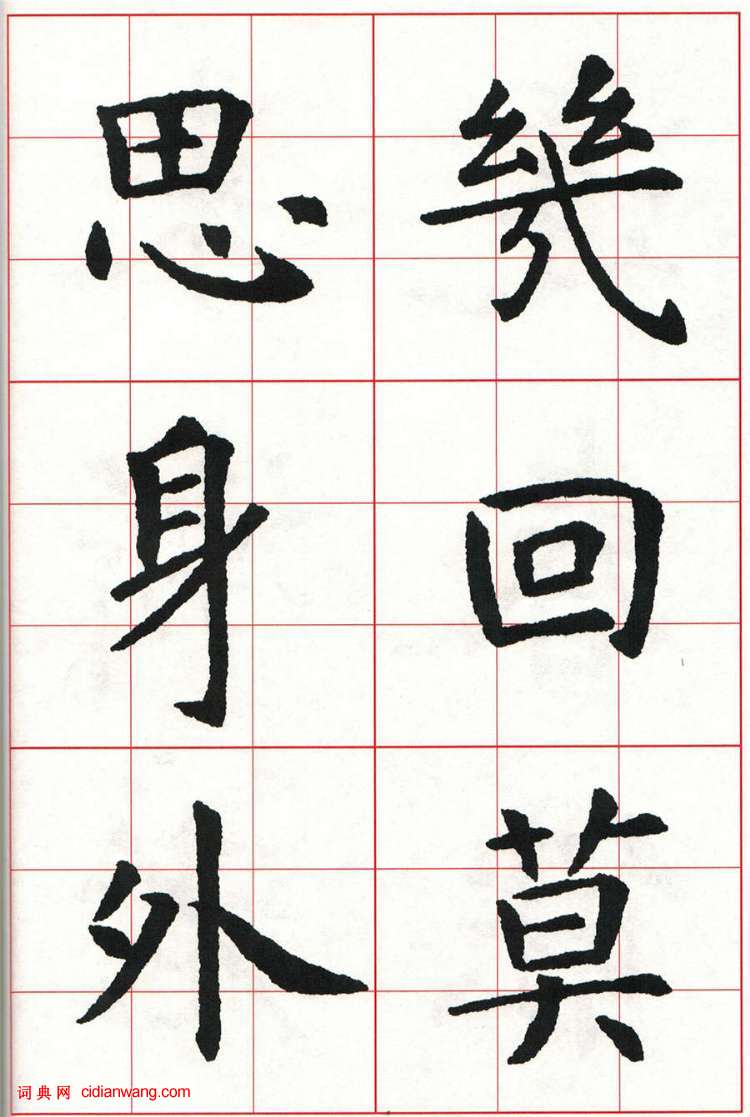 幾回莫
思身外
词典网 cidianwang.com